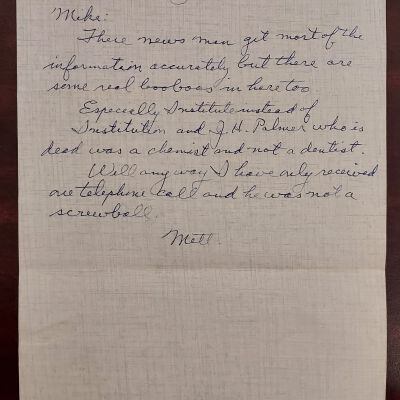 Mike:
These news man get most of the
information accurately but there are
some real booboos in here too.
Especially Institute instead of
Institution and J. H. Palmer who is
dead was a chemist and not a dentist.
Well any way I have only received
one telephone call and he was not a
screwball.
Mell.